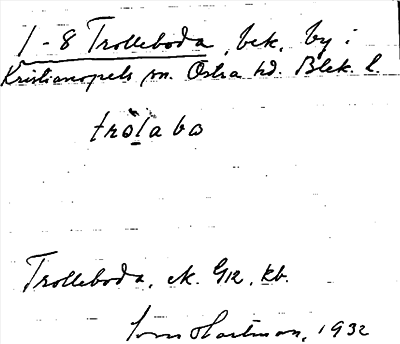 1-8 Trolleboda, bek. by i
Kristianopels sn. Östra hd. Blek. l.
trolabo
Trolleboda, ek. G12, kb.
Hartman, 1932